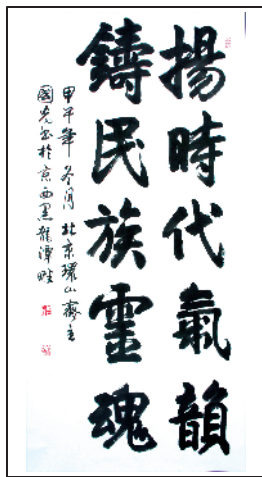 揚時代氣韻
鑄民族靈魂
甲午年冬月北京環山齋主
國光書於京西黑龍潭畔